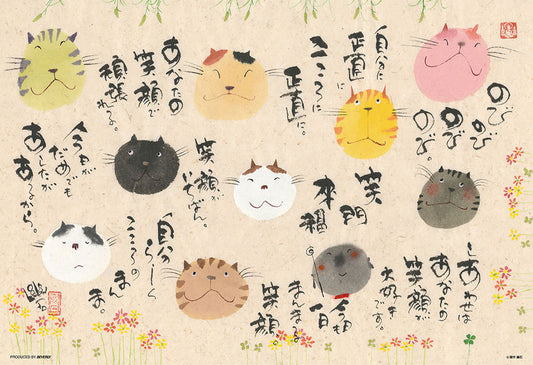 のび
のび
のび
のび。
自分に
正直に
こころに
正直に。
あなたの
笑顔で
頑張
れる。
笑
門
来
福
笑顔が
いちばん。
今日が
だめでも
あしたが
あるから。
しあわせは
あなたの
笑顔が
大好き
です。
今日も
一日
まんまる
笑顔。
自分
らしく
こころの
まんま。
PRODUCED BY BEVERLY